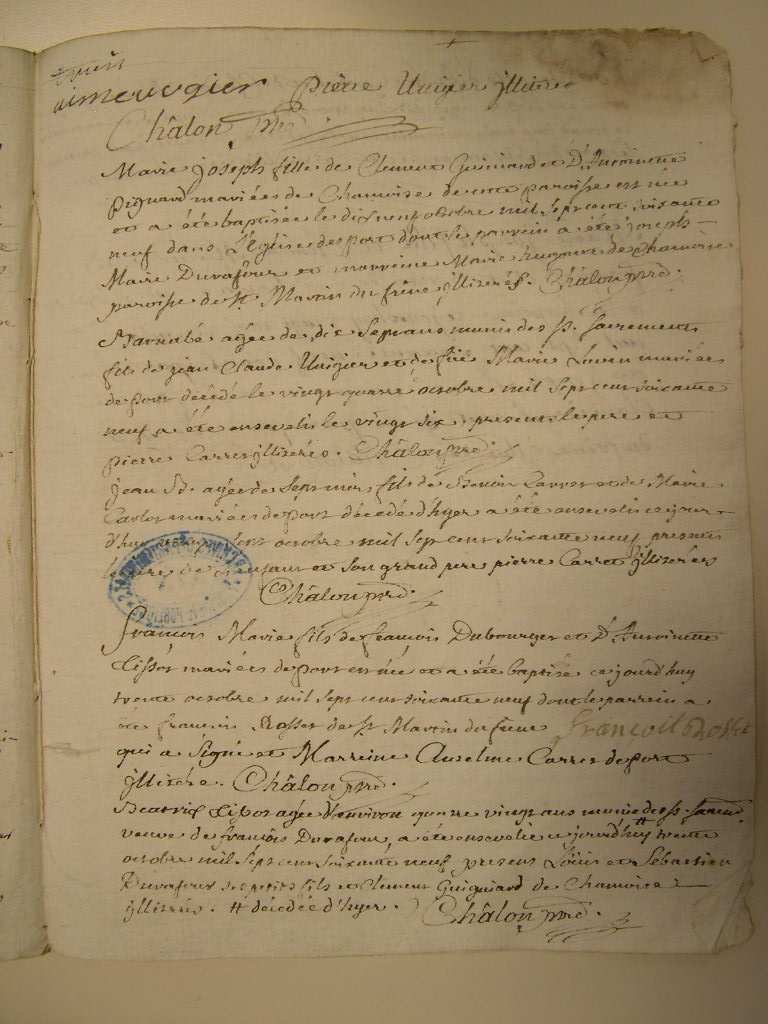 aimé uigier Pierre Uuigier yllitere
Châlon ptre
Marie joseph fille de Clement Guiniard et D'Antoinette
Pignard mariées de Chamoise de cette paroisse est née
et a été baptisée le dixneuf octobre mil sept cent soixante
neuf dans L'Eglise de port dont le parrein a été joseph
Marie Durafour et marreine Marie hugonet de Chamoise
paroisse de St. Martin du frêne yllitérés. Châlon ptre.
Barnabé agée de dix sept ans munis des st. sacrements
fils de jean Claude Uuigier et de füe Marie mariées
de port décédé le vingt quatre octobre mil sept cent soixante
neuf a été enseveli le vingt six present le pere et
pierre Carret yllitérés. Châlon ptre.
jean Bte. agée de sept mois fils de Benoit Carret et de Marie
mariées de port décédé d'hyer a été enseveli ce jour
d'huy octobre mil sept cent soixante neuf present
et son grand pere pierre Carret yllitérés
Châlon ptre.
françois Marie fils de françois Dubourget et D'Antoinette
Tissot mariées de port est née et a été baptisé ce jourd'huy
trente octobre mil sept cent soixante neuf dont le parrein a
été francois Rosset de St Martin du frene françois Rosset
qui a signé et Marreine Anselme Carret de port
yllitére. Châlon ptre.
Beatrix Tissot agée d'environ quatre vingt ans munie des st. sacremt
veuve de françois Durafour, a été ensevelie ce jourd'huy # trente
octobre mil sept cent soixante neuf present Loüis et Sebastien
Durafour ses petits fils et Clement Guigniard de Chamoise
yllitérés. # décédée d'hyer. Châlon ptre.